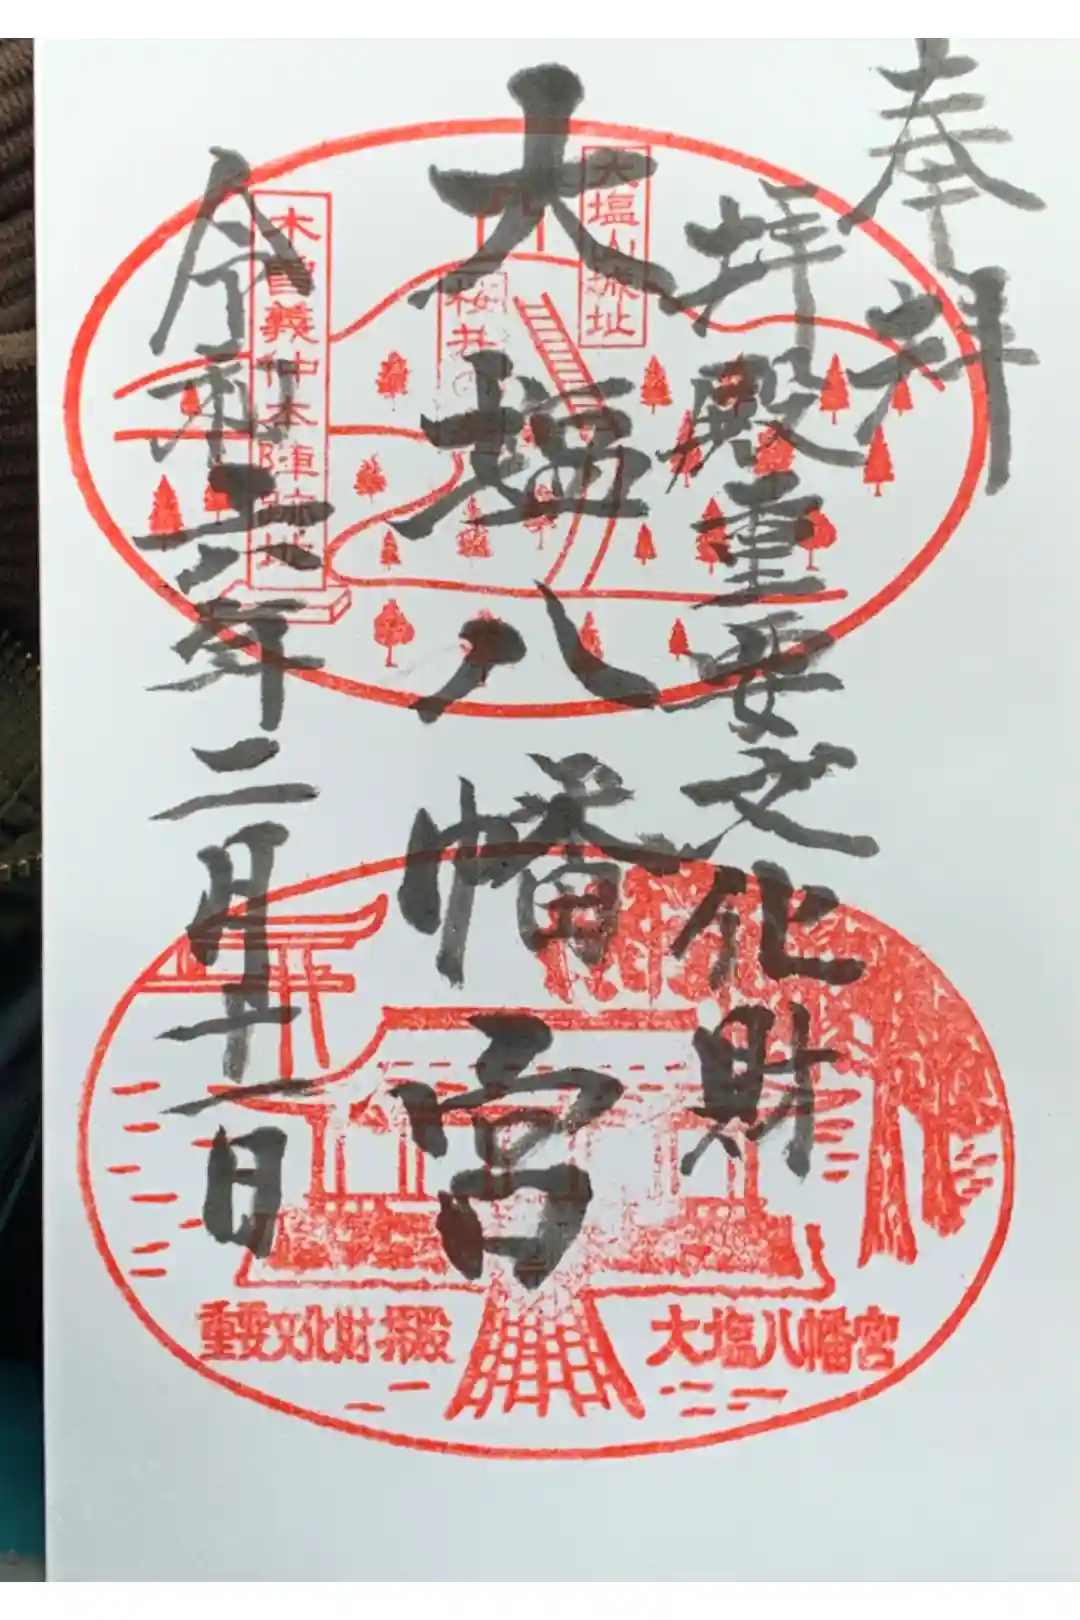 奉拝
拝殿重要文化財
大塩八幡宮
令和六年二月十一日
大塩山城址
桜井
木曽義仲本陣跡址
重要文化財拝殿
大塩八幡宮